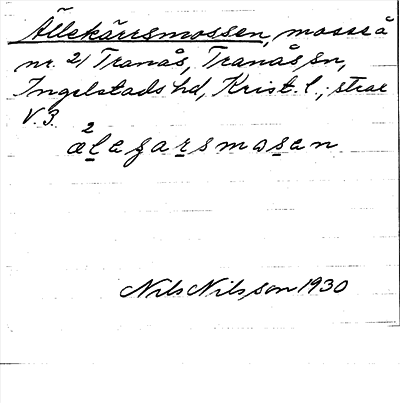 Ällekärrsmossen, mosse å
nr. 21 Tranås, Tranås sn,
Ingelstads hd, Krist. l.; strax
V. 3.
2
ælagarsmosan
Nils Nilsson 1930